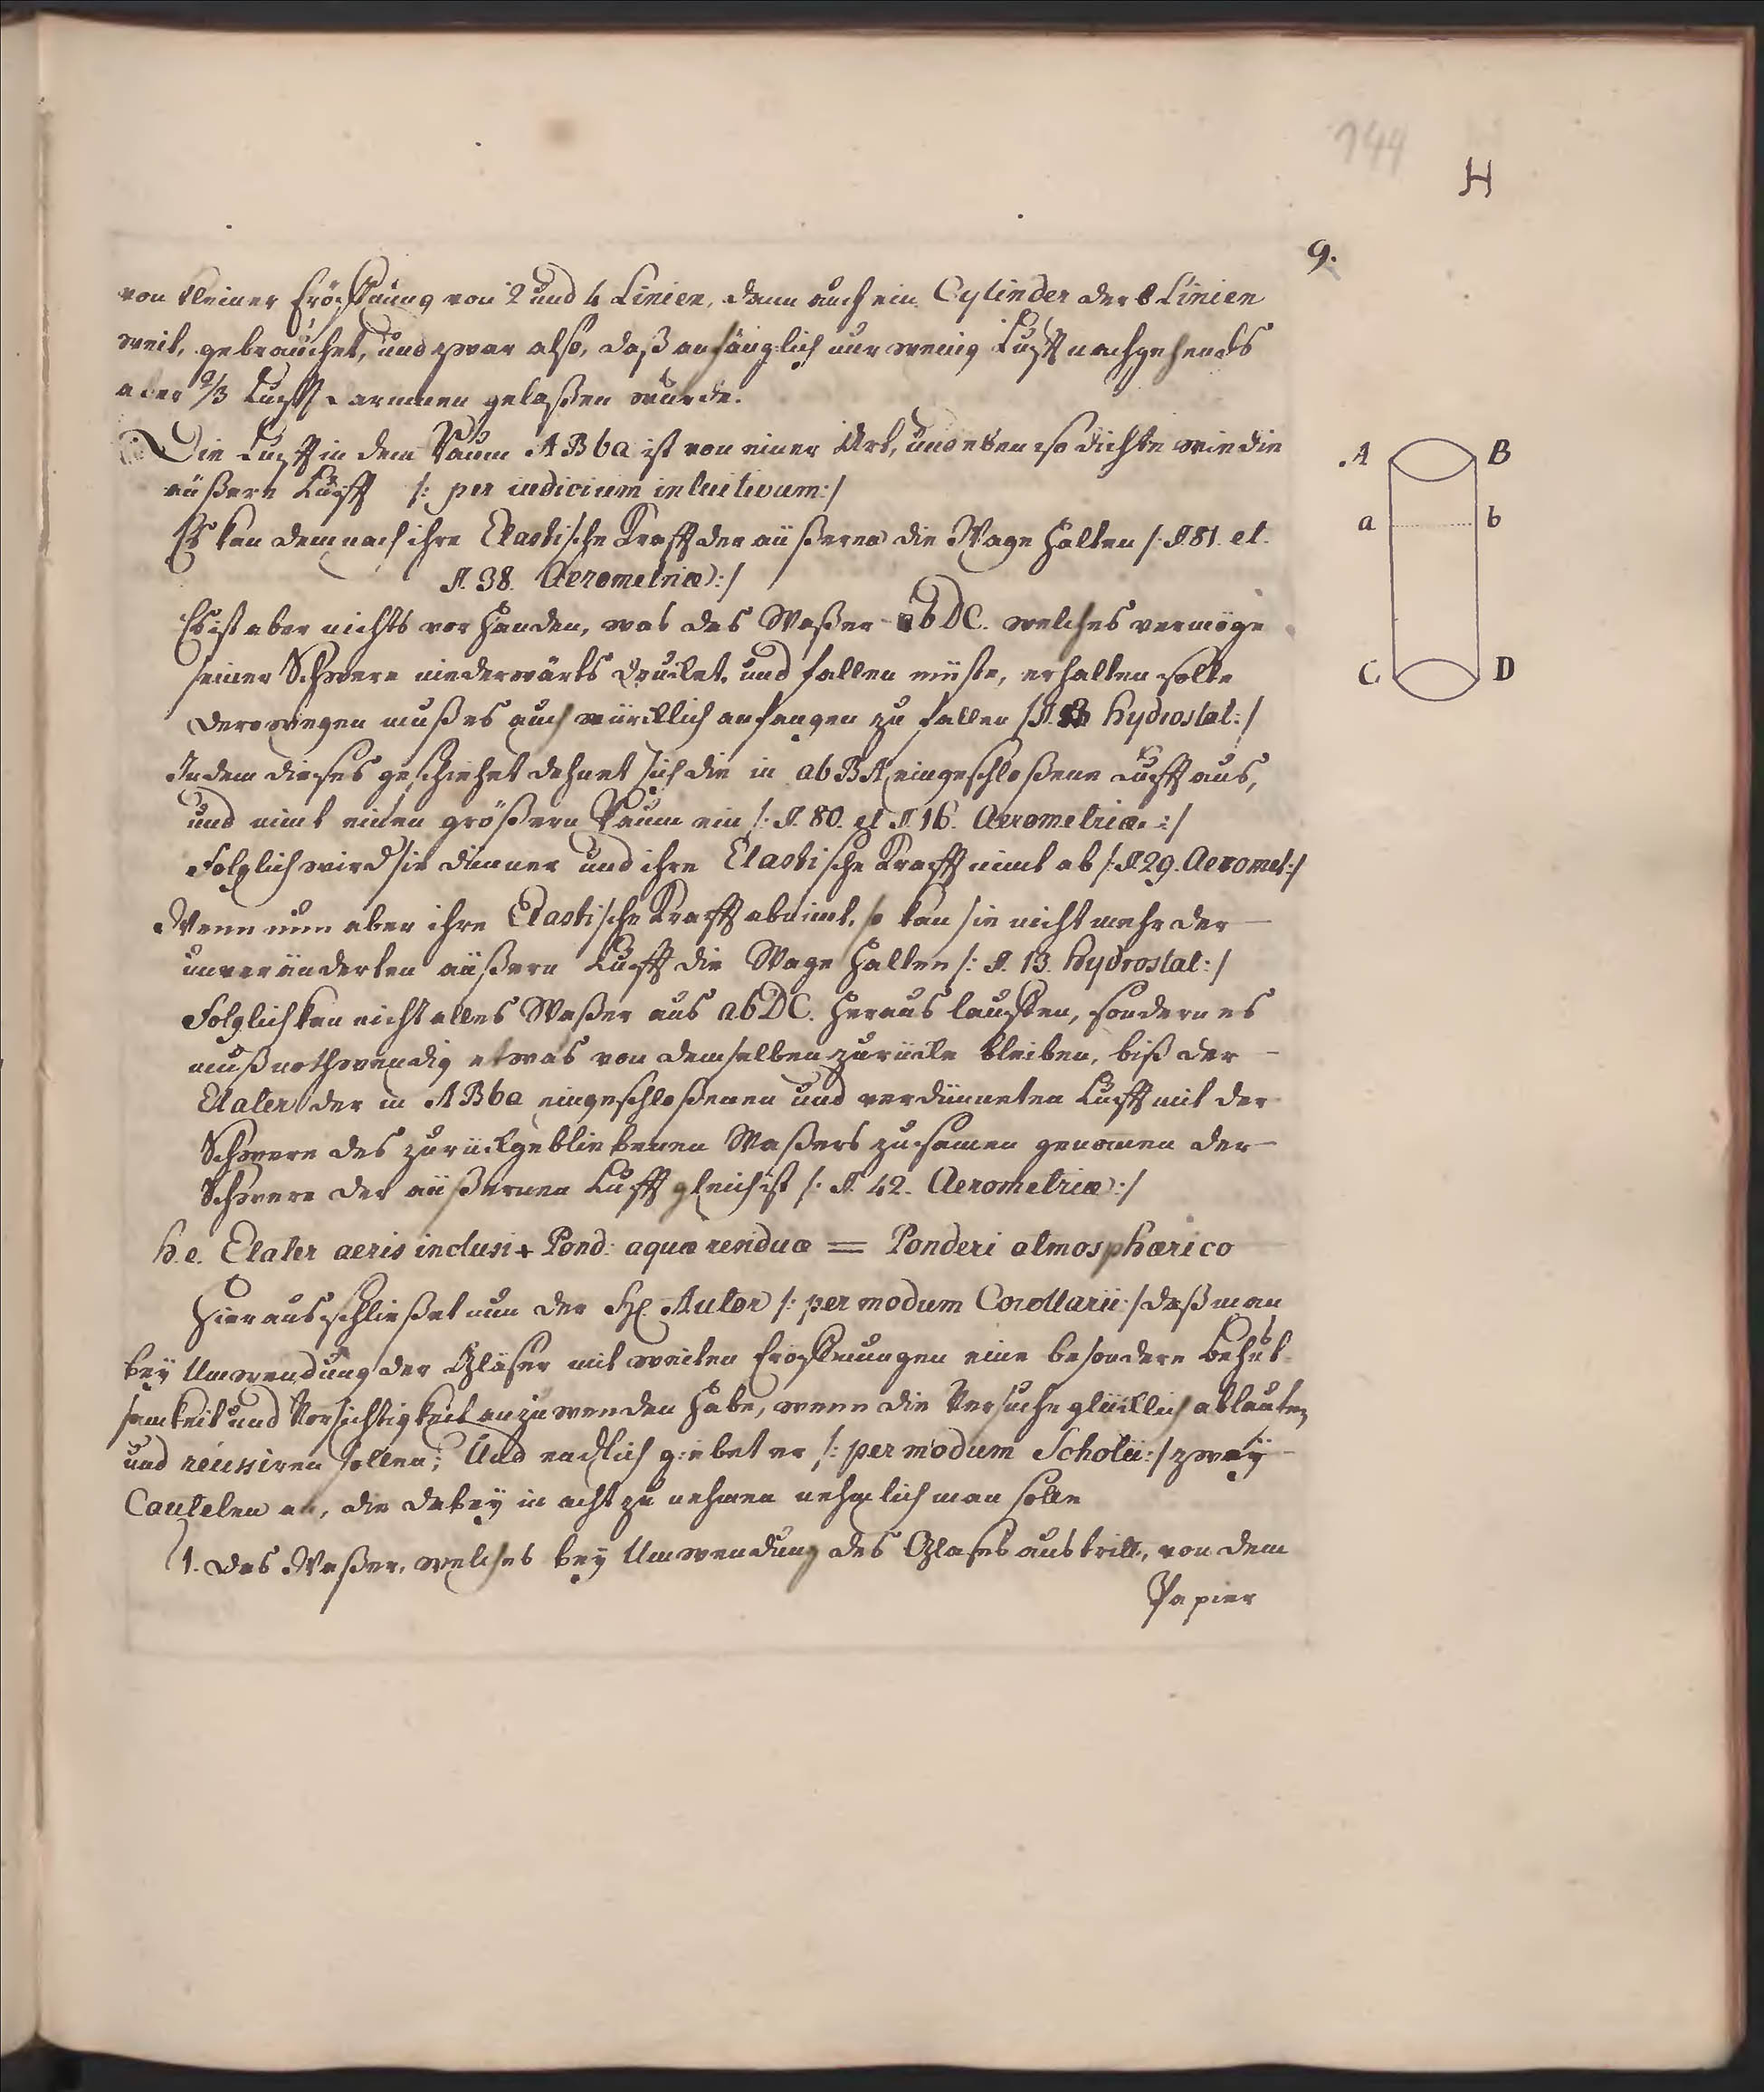 144
H
9.
von kleiner Eröffnung von 2 und 4 Linien, dann auch ein Cylinder der 8 Linien
weit, gebrauchet, und zwar also, daß anfänglich nur wenig Lufft nachgehends
aber 2/3 Lufft darinnen gelaßen wurde.
Die Lufft in dem Raum ABba ist von einer Art, und eben so dichte wie die
äußere Lufft /: per iudicium intuitivum :/
Es kan demnach ihre Elastische Krafft der äußeren die Wage halten /: §. 81. et.
§. 38. Aerometriæ :/
Es ist aber nichts vorhanden, was das Waßer abDC. welches vermöge
seiner Schwere niederwärts drucket, und fallen müste, erhalten solte
derowegen muß es auch würcklich anfangen zu fallen /: §. Hydrostat: /
Indem dieses geschiehet dehnet sich die in abBA eingeschloßene Lufft aus,
und nimt einen größern Raum ein /: §. 80. et §. 16. Aerometriæ. :/
Folglich wird sie dünner und ihre Elastische Krafft nimt ab /: §. 29. Aeromet: /
Wenn nun aber ihre Elastische Krafft abnimt, so kan sie nicht mehr der
unveränderten äußern Lufft die Wage halten /: §. 13. Hydrostat: /
Folglich kan nicht alles Waßer aus abDC. heraus lauffen, sondern es
muß nothwendig etwas von demselben zurücke bleiben, biß der
Elater der in ABba eingeschloßenen und verdünneten Lufft mit der
Schwere des zurückgebliebenen Waßers zusamen genomen der
Schwere der äußernen Lufft gleich ist /: §. 42. Aerometriæ :/
h.e. Elater aeris inclusi + Pond: aquæ residuæ = Ponderi atmosphærico
Hieraus schließet nun der H. Autor /: per modum Corollarii :/ daß man
bey Umwendung der Gläser mit weiten Eröffnungen eine besondere Behut-
samkeit und Vorsichtigkeit anzuwenden habe, wenn die Versuche glücklich ablaufen
und reüssiren sollen; Und endlich giebet er /: per modum Scholii :/ zwey
Cautelen an, die dabey in acht zu nehmen nehmlich man solle
1. das Waßer, welches bey Umwendung des Glases austritt, von dem
Papier
A B
a b
C D